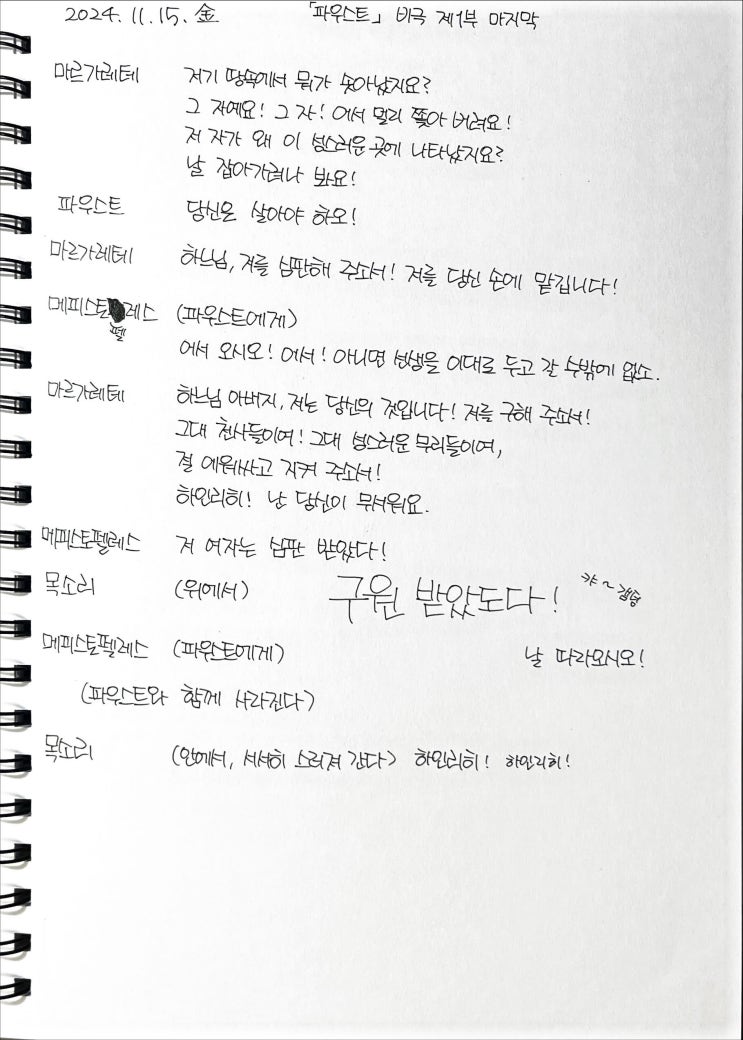 2024. 11. 15. 金 「파우스트」 비극 제1부 마지막
마르가레테 저기 땅속에서 뭐가 솟아났지요?
그 자예요! 그 자! 어서 멀리 쫓아 버려요!
저 자가 왜 이 성스러운 곳에 나타났지요?
날 잡아가려나 봐요!
파우스트 당신은 살아야 하오!
마르가레테 하느님, 저를 심판해 주소서! 저를 당신 손에 맡깁니다!
메피스토펠레스 (파우스트에게)
어서 오시오! 어서! 아니면 선생을 이대로 두고 갈 수밖에 없소.
마르가레테 하느님 아버지, 저는 당신의 것입니다! 저를 구해 주소서!
그대 천사들이여! 그대 성스러운 무리들이여,
절 에워싸고 지켜 주소서!
하인리히! 난 당신이 무서워요.
메피스토펠레스 저 여자는 심판 받았다!
목소리 (위에서) 구원 받았도다! 캬~ 감동
메피스토펠레스 (파우스트에게) 날 따라오시오!
(파우스트와 함께 사라진다)
목소리 (안에서, 서서히 스러져 간다) 하인리히! 하인리히!